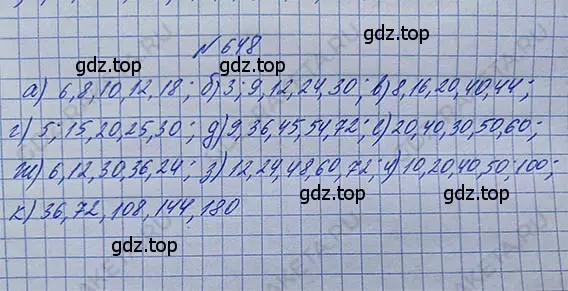 № 648
gdz.top gdz.top gdz.top
а) 6, 8, 10, 12, 18; б) 3; 9, 12, 24, 30; в) 8, 16, 20, 40, 44;
г) 5; 15, 20, 25, 30; д) 9, 36, 45, 54, 72; е) 20, 40, 30, 50, 60;
ж) 6, 12, 30, 36, 24; з) 12, 24, 48, 60, 72; и) 10, 20, 40, 50, 100;
gdz.top
к) 36, 72, 108, 144, 180
gdz.top gdz.top